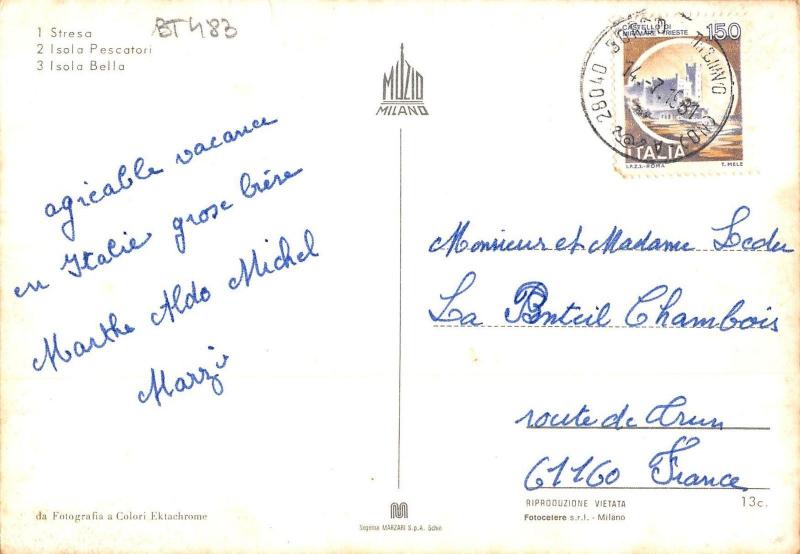 1 Stresa
2 Isola Pescatori
3 Isola Bella
BT483
MUZIO
MILANO
CASTELLO DI
MIRAMARE TRIESTE
150
ITALIA
I.P.Z.S.-ROMA
T. MELE
28040
14.-7.1981
agréable vacance
en Italie grose bise
Marthe Aldo Michel
Marzi
Monsieur et Madame Ledu
La Bonteil Chambois
route de Trun
61160 France
da Fotografia a Colori Ektachrome
Segema MARZARI S.p.A. Schio
RIPRODUZIONE VIETATA
Fotocelere s.r.l. - Milano
13c.